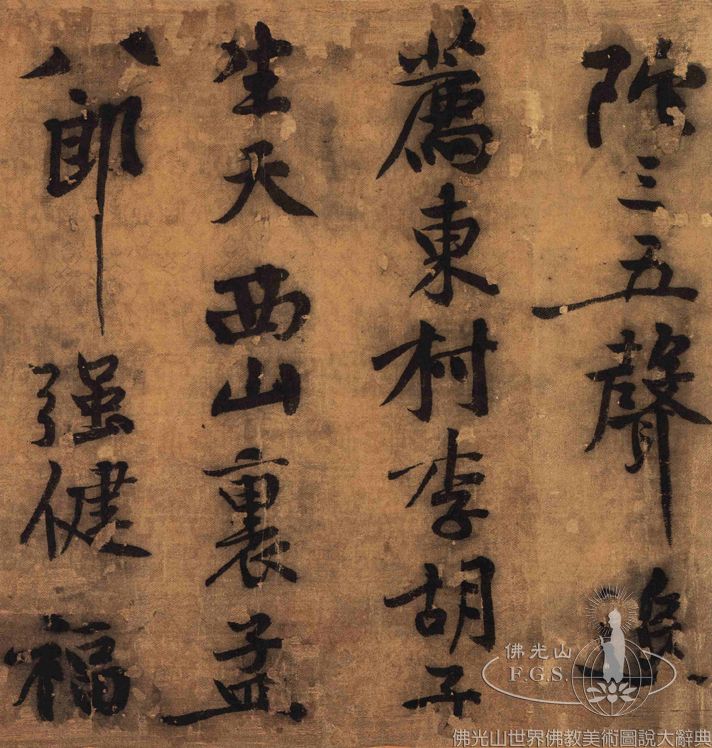 陀三五聲
薦東村李胡子
生天西山裏孟
八郎强健福
佛光山
F.G.S.
佛光山世界佛教美術圖說大辭典